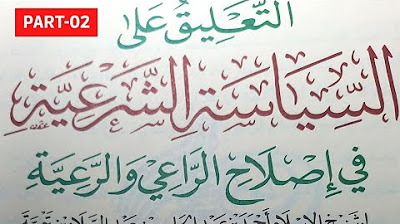 PART-02
التَّعْلِيقُ عَلَى
السِّيَاسَةِ الشَّرْعِيَّةِ
فِي إِصْلَاحِ الرَّاعِي وَالرَّعِيَّةِ